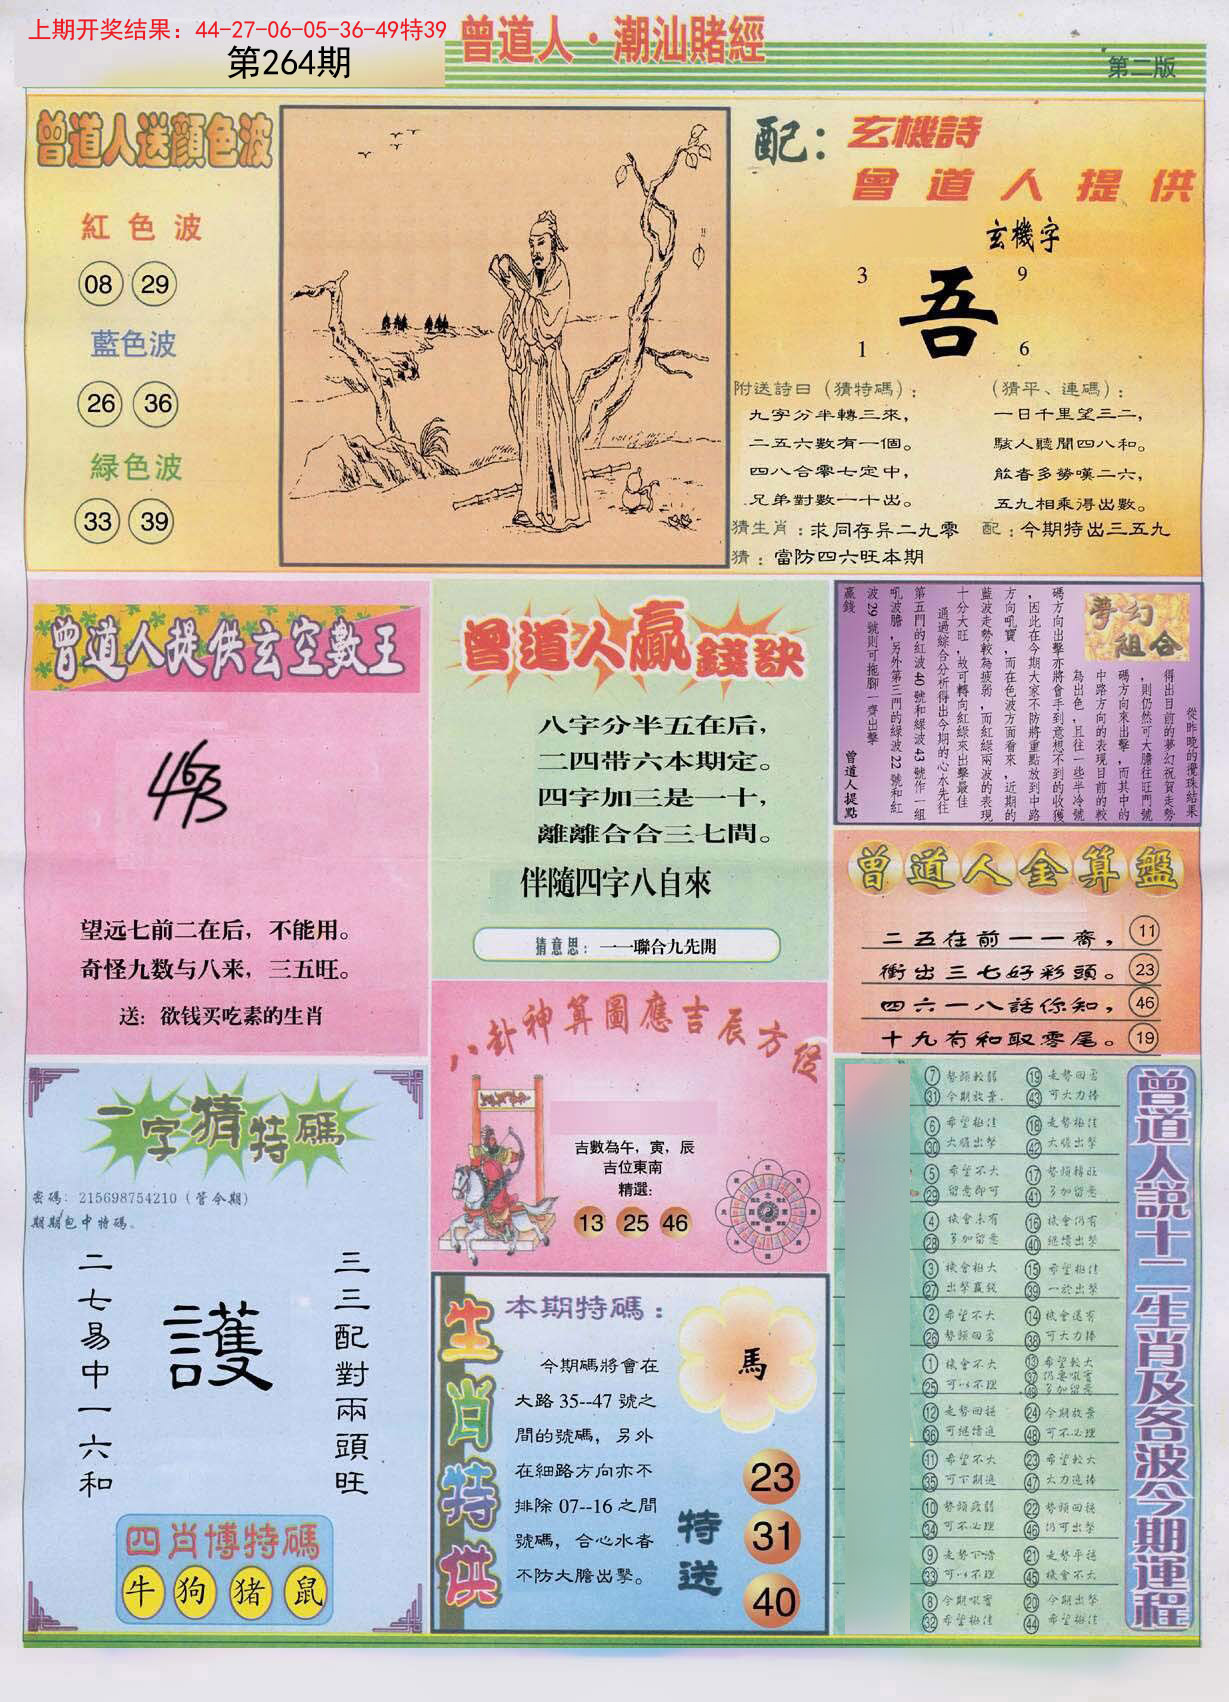 上期开奖结果：44-27-06-05-36-49特39
第264期
曾道人·潮汕賭經
第二版
曾道人送顔色波
紅色波
08 29
藍色波
26 36
緑色波
33 39
配：玄機詩
曾道人提供
玄機字
3 9
吾
1 6
附送詩日（猜特碼）：
九字分半轉三來，
二五六數有一個。
四八合零七定中，
兄弟對數一十出。
（猜平、連碼）：
一日千里望三二，
駭人聽聞四八和。
能者多勞嘆二六，
五九相乘得出數。
猜生肖：求同存异二九零
配：今期特出三五九
猜：當防四六旺本期
曾道人提供玄空數王
463
望远七前二在后，不能用。
奇怪九数与八来，三五旺。
送：欲钱买吃素的生肖
曾道人贏錢訣
八字分半五在后，
二四带六本期定。
四字加三是一十，
離離合合三七間。
伴隨四字八自來
猜意思：一一聯合九先開
夢幻組合
從昨晚的攪珠結果
得出目前的夢幻祝賀走勢
，則仍然可大膽往旺門號
碼方向來出擊，而其中的
中路方向的表現目前的較
為出色，且往一些半冷號
碼方向出擊亦將會手到意想不到的收獲
，因此在今期大家不防將重點放到中路
方向吼寶，而在色波方面看來，近期的
藍波走勢較為疲弱，而紅緑兩波的表現
十分大旺，故可轉向紅緑來出擊最佳
通過綜合分析得出今期的心水先往
第五門的紅波40號和緑波43號作一組
吼波膽，另外第三門的緑波22號和紅
波29號則可拖腳一齊出擊
贏錢
曾道人提點
曾道人金算盤
二五在前一一齊，11
衝出三七好彩頭。23
四六一八話你知，46
十九有和取零尾。19
一字猜特碼
密碼：215698754210（管今期）
期期包中特碼。
二七易中一六和
護
三三配對兩頭旺
四肖博特碼
牛 狗 猪 鼠
八卦神算圖應吉辰方位
吉數為午，寅，辰
吉位東南
精選：
13 25 46
生肖特供
本期特碼：
今期碼將會在
大路35--47號之
間的號碼，另外
在細路方向亦不
排除07--16之間
號碼，合心水者
不防大膽出擊。
馬
特送
23
31
40
曾道人説十二生肖及各波今期運程
7 勢頭較弱 19 走勢回勇
31 今期放棄 43 可大力捧
6 希望極佳 18 走勢極佳
30 大膽出擊 42 大膽出擊
5 希望不大 17 勢頭轉旺
29 留意即可 41 多加留意
4 機會未有 16 機會仍有
28 多加留意 40 繼續出擊
3 機會極大 15 希望極佳
27 出擊贏錢 39 一於出擊
2 希望不大 14 機會還有
26 勢頭回勇 38 可大力捧
1 機會不大 13 希望較大
25 可以不理 37 仍要吼實
49 多加留意
12 走勢回穩 24 今期放棄
36 可繼續追 48 可不必理
11 希望不大 23 希望較大
35 可下期追 47 大力追捧
10 勢頭疲弱 22 勢頭回穩
34 可不必理 46 仍可出擊
9 走勢下滑 21 走勢平穩
33 可以不理 45 機會不大
8 今期吼實 20 今期出擊
32 希望極佳 44 希望極佳